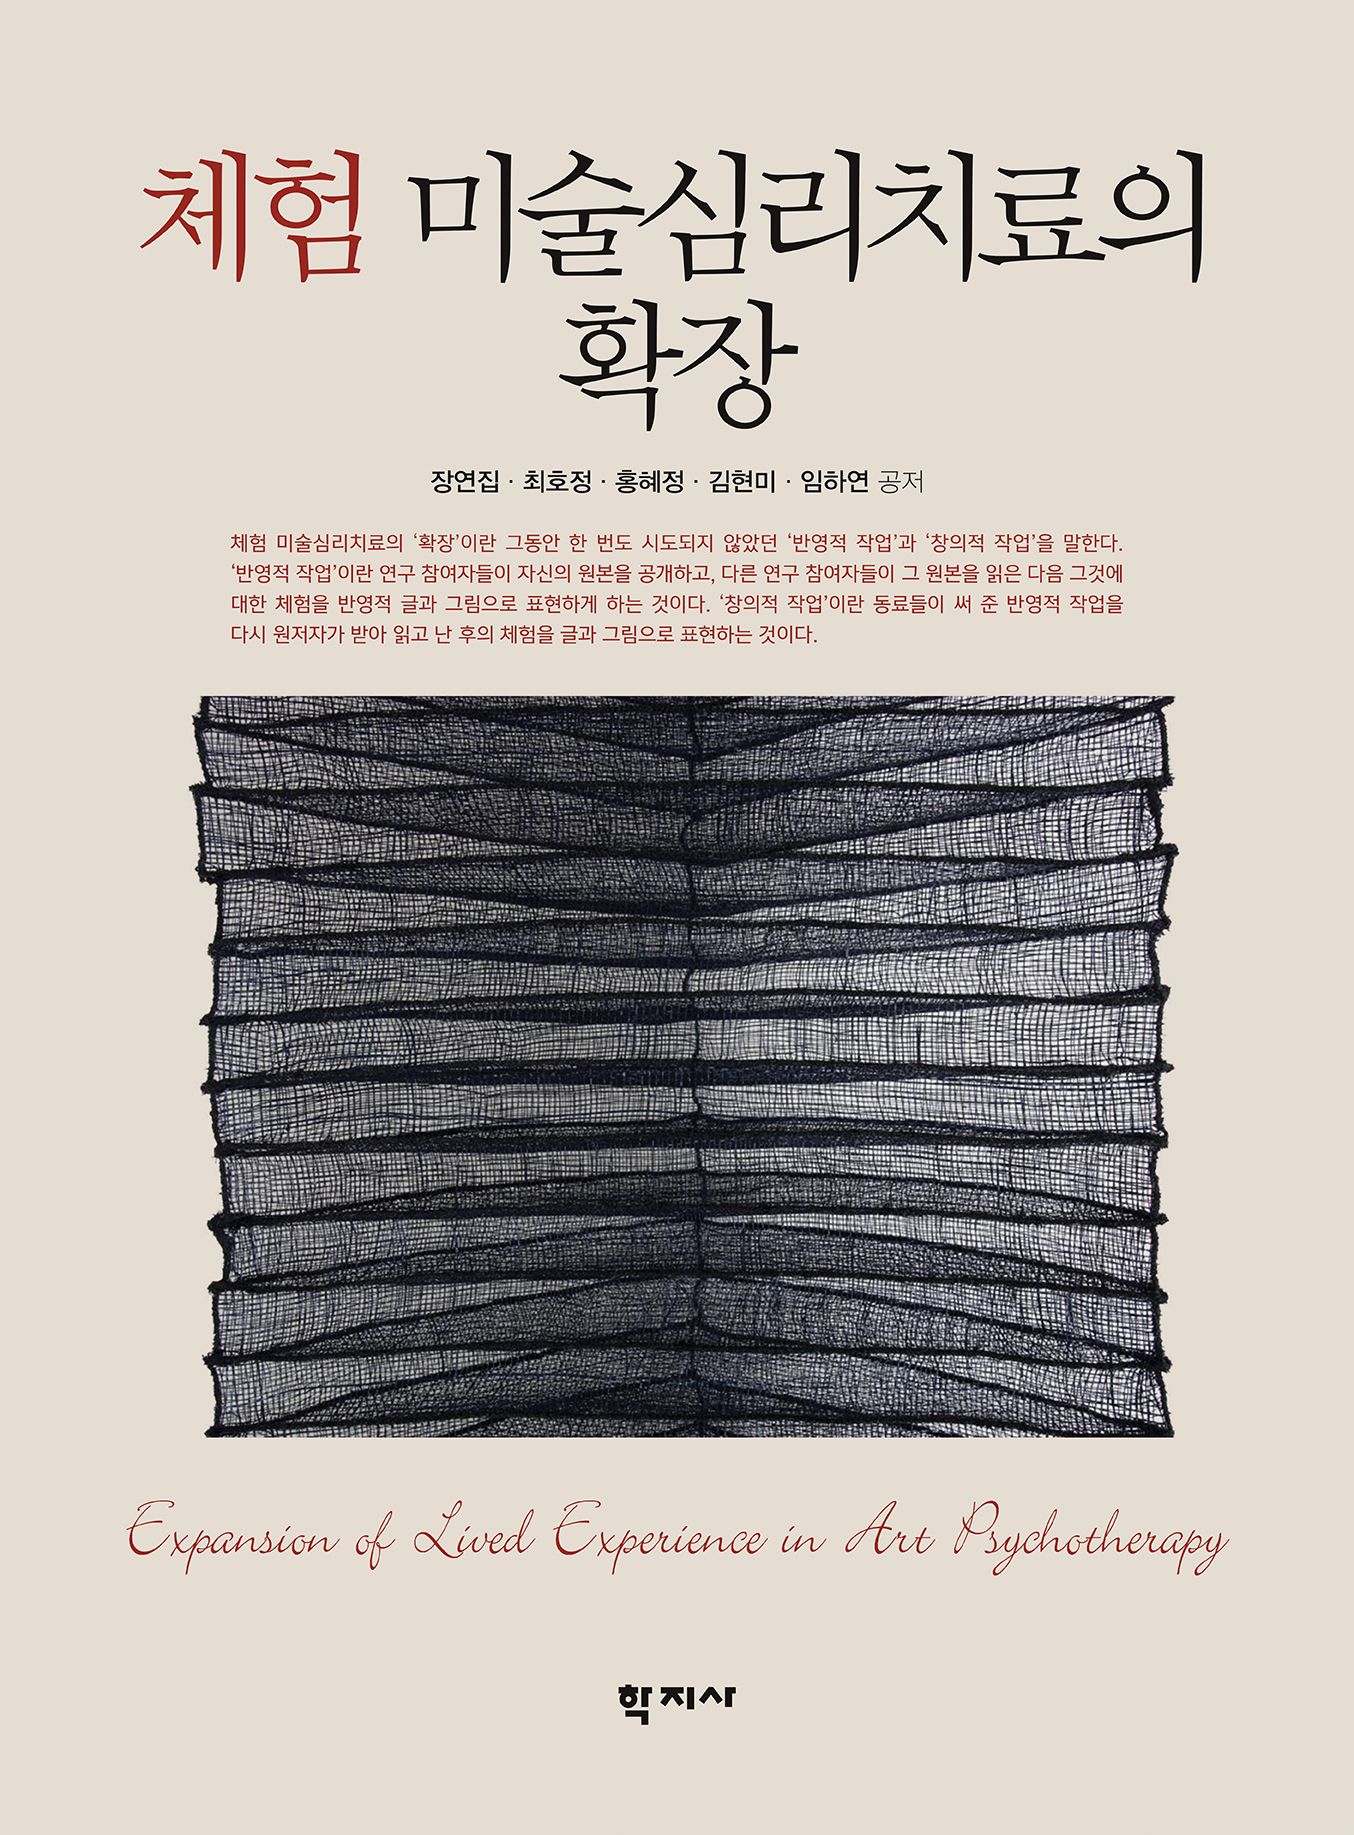 체험 미술심리치료의
확장
장연집 · 최호정 · 홍혜정 · 김현미 · 임하연 공저
체험 미술심리치료의 ‘확장’이란 그동안 한 번도 시도되지 않았던 ‘반영적 작업’과 ‘창의적 작업’을 말한다.
‘반영적 작업’이란 연구 참여자들이 자신의 원본을 공개하고, 다른 연구 참여자들이 그 원본을 읽은 다음 그것에
대한 체험을 반영적 글과 그림으로 표현하게 하는 것이다. ‘창의적 작업’이란 동료들이 써 준 반영적 작업을
다시 원저자가 받아 읽고 난 후의 체험을 글과 그림으로 표현하는 것이다.
Expansion of Lived Experience in Art Psychotherapy
학지사